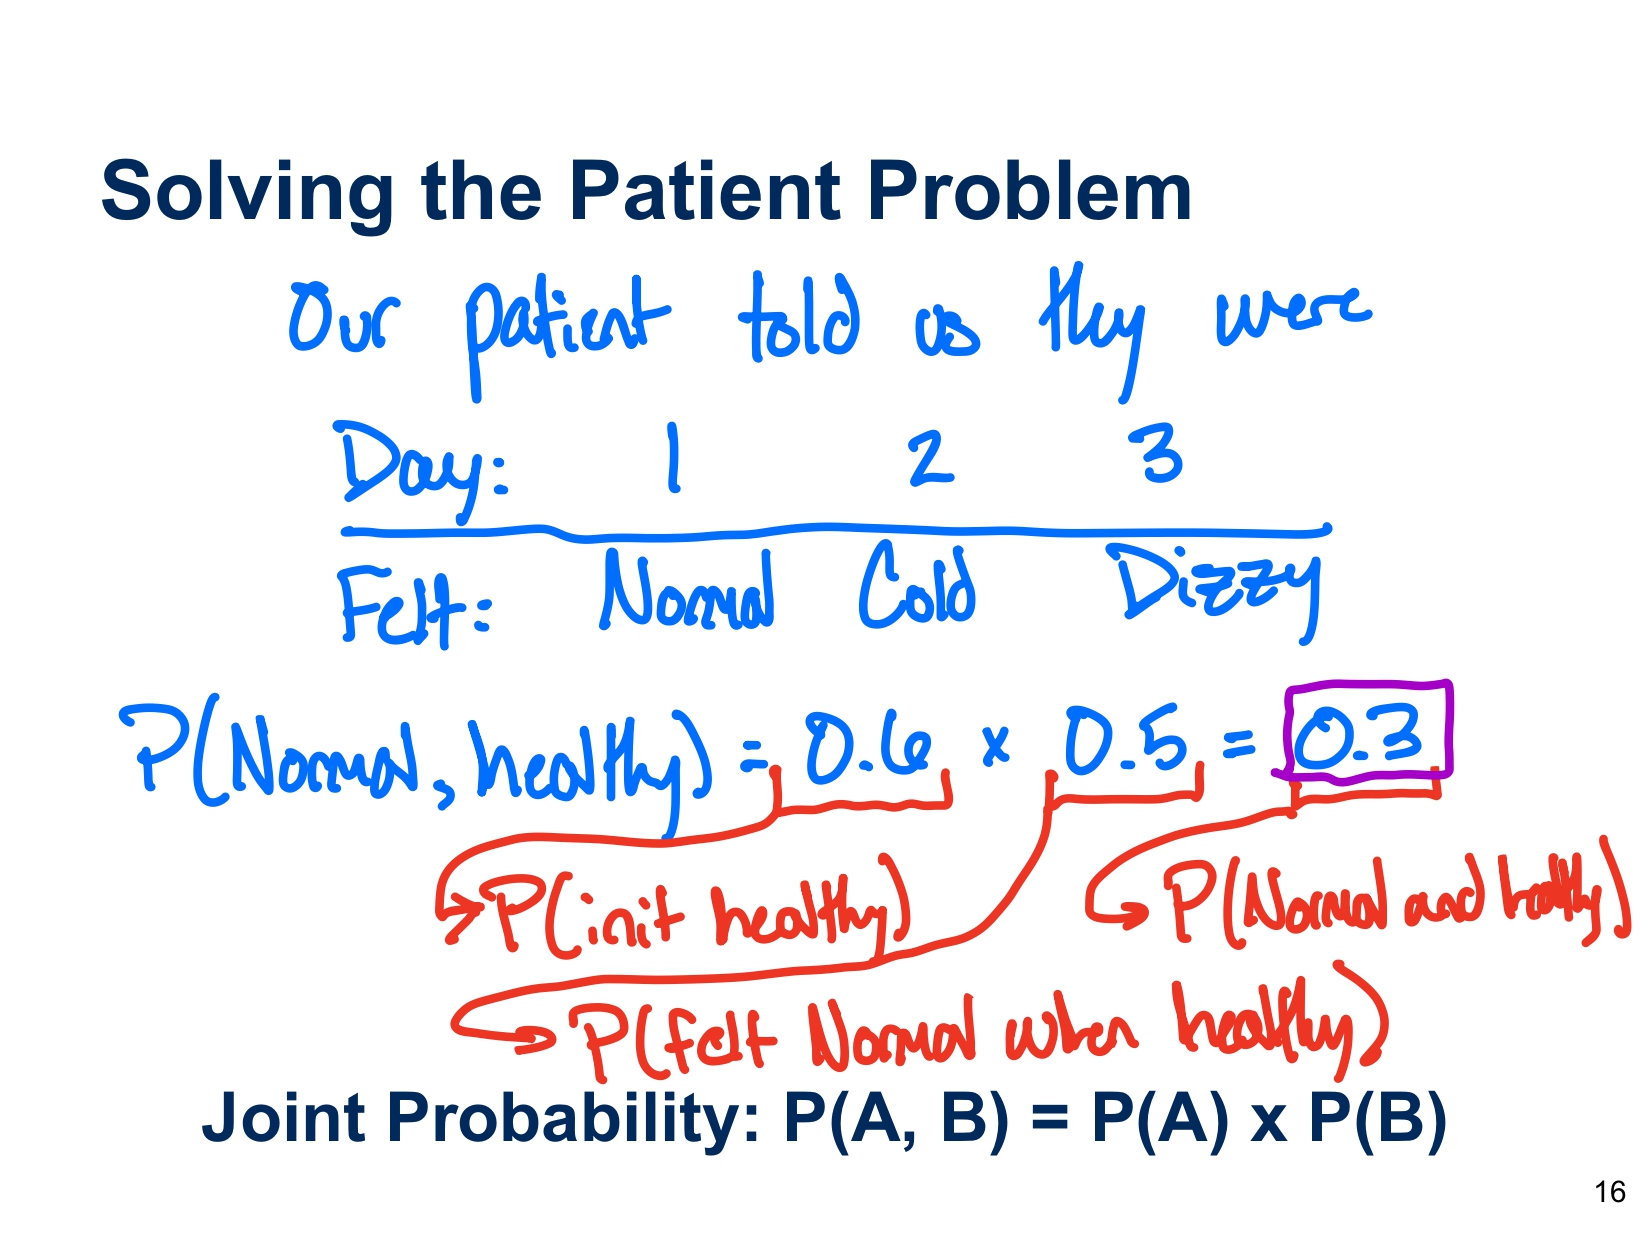 Solving the Patient Problem
Our patient told us they were
Day: 1 2 3
Felt: Normal Cold Dizzy
P(Normal, healthy) = 0.6 x 0.5 = 0.3
P(init healthy) P(Normal and healthy)
P(felt Normal when healthy)
Joint Probability: P(A, B) = P(A) x P(B)
16